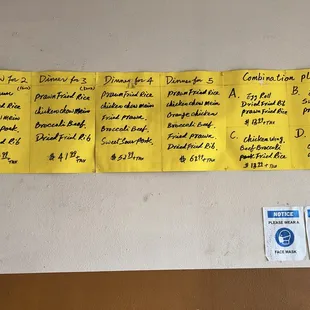 for 2
Fried Rice
chow Mein
Dried Rib
Dinner for 3
Prawn Fried Rice
chicken chow Mein
Broccoli Beef
Dried Fried Rib
$ 41.99 + TAX
Dinner for 4
Prawn Fried Rice
chicken chow Mein
Fried Prawn
Broccoli Beef.
Sweet Sour Pork.
$ 52.99 + TAX
Dinner for 5
Prawn Fried Rice
chicken chow Mein
Orange chicken
Broccoli Beef.
Fried Prawn.
Dried Fried Rib.
$ 61.99 + TAX
Combination pl
A. Egg Roll
Dried Fried Rib
Prawn Fried Rice
$ 13.99 + TAX
B.
C. Chicken wing.
Beef Broccoli
Pork Fried Rice
$ 13.99 + TAX
D.
NOTICE
PLEASE WEAR A
FACE MASK